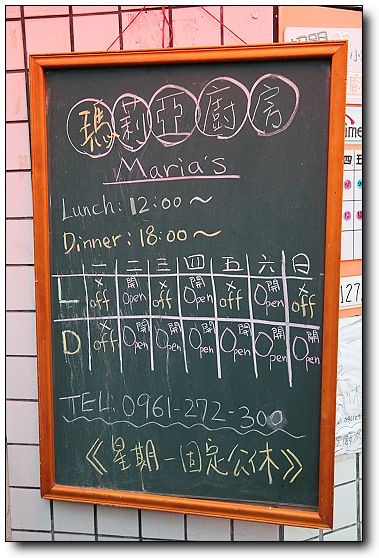 瑪莉亞廚房
Maria's
Lunch: 12:00～
Dinner: 18:00～
一 二 三 四 五 六 日
L × off 開 Open × off 開 Open × off 開 Open × off
D × off 開 Open 開 Open 開 Open 開 Open 開 Open 開 Open
TEL: 0961-272-300
《星期一固定公休》
四 五
127